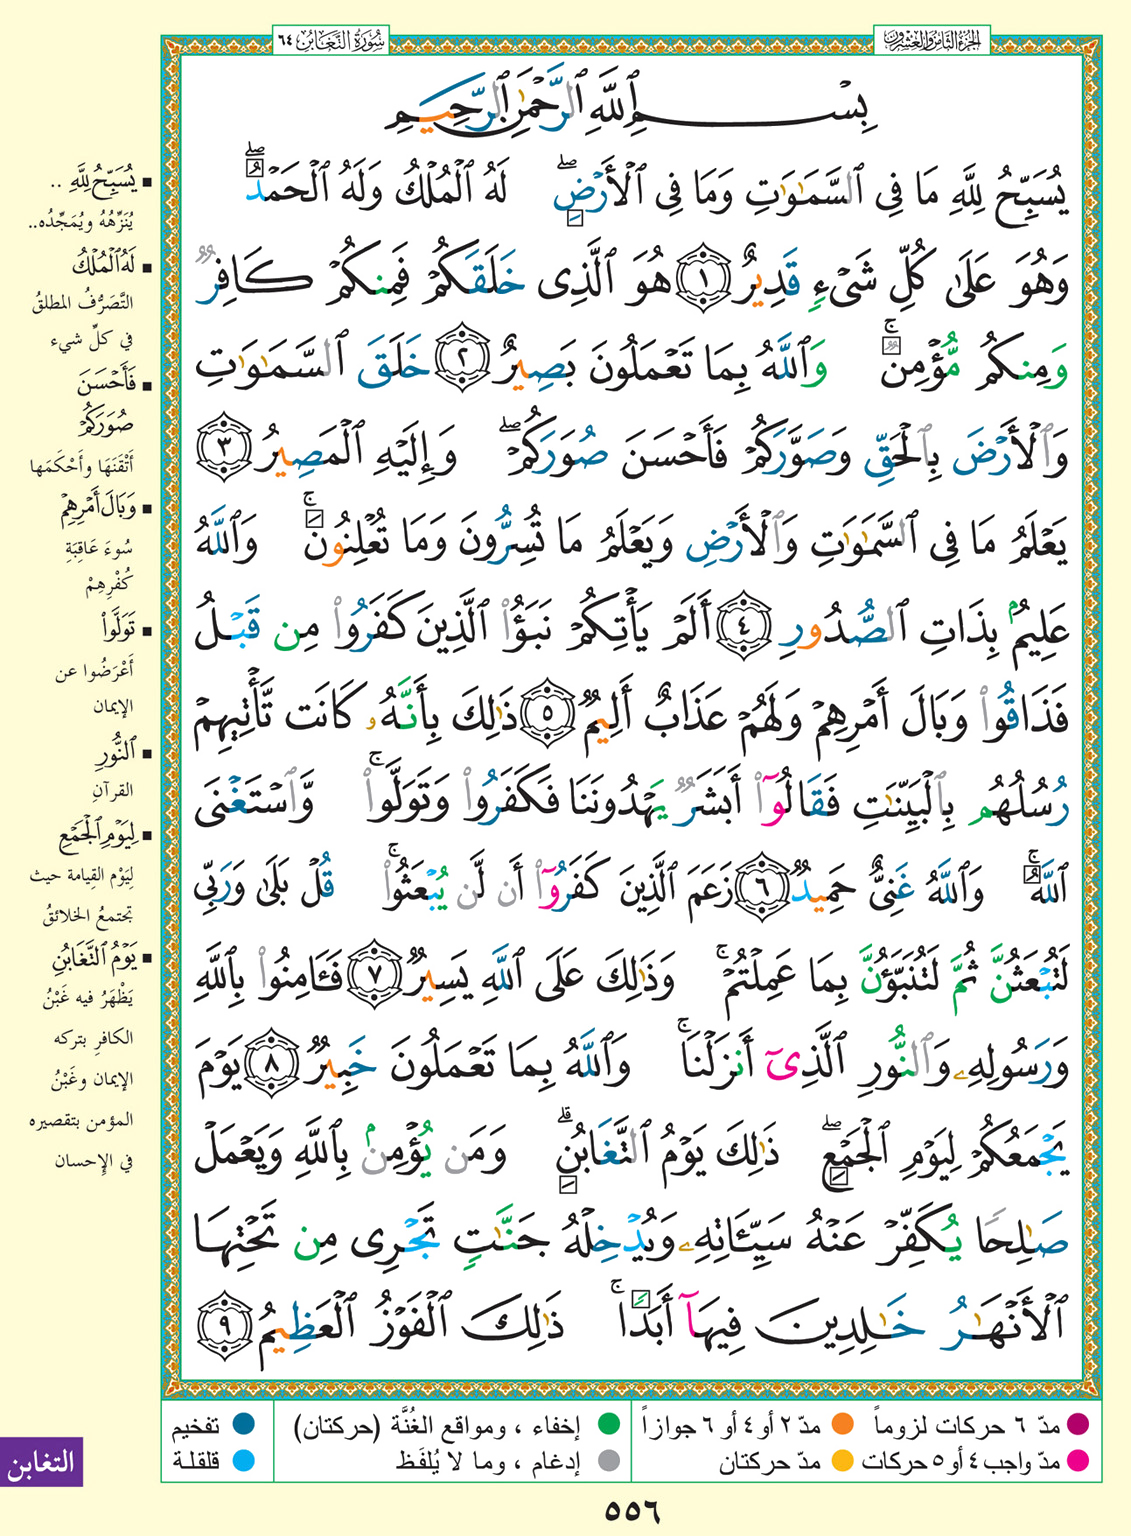 الجزء الثامن والعشرون
سُورَةُ التَّغَابُن ٦٤
بِسْمِ ٱللَّهِ ٱلرَّحْمَٰنِ ٱلرَّحِيمِ
يُسَبِّحُ لِلَّهِ مَا فِى ٱلسَّمَٰوَٰتِ وَمَا فِى ٱلْأَرْضِ ۖ لَهُ ٱلْمُلْكُ وَلَهُ ٱلْحَمْدُ ۖ
وَهُوَ عَلَىٰ كُلِّ شَىْءٍ قَدِيرٌ ١ هُوَ ٱلَّذِى خَلَقَكُمْ فَمِنكُمْ كَافِرٌ
وَمِنكُم مُّؤْمِنٌ ۚ وَٱللَّهُ بِمَا تَعْمَلُونَ بَصِيرٌ ٢ خَلَقَ ٱلسَّمَٰوَٰتِ
وَٱلْأَرْضَ بِٱلْحَقِّ وَصَوَّرَكُمْ فَأَحْسَنَ صُوَرَكُمْ ۖ وَإِلَيْهِ ٱلْمَصِيرُ ٣
يَعْلَمُ مَا فِى ٱلسَّمَٰوَٰتِ وَٱلْأَرْضِ وَيَعْلَمُ مَا تُسِرُّونَ وَمَا تُعْلِنُونَ ۚ وَٱللَّهُ
عَلِيمٌۢ بِذَاتِ ٱلصُّدُورِ ٤ أَلَمْ يَأْتِكُمْ نَبَؤُا۟ ٱلَّذِينَ كَفَرُوا۟ مِن قَبْلُ
فَذَاقُوا۟ وَبَالَ أَمْرِهِمْ وَلَهُمْ عَذَابٌ أَلِيمٌ ٥ ذَٰلِكَ بِأَنَّهُۥ كَانَت تَّأْتِيهِمْ
رُسُلُهُم بِٱلْبَيِّنَٰتِ فَقَالُوٓا۟ أَبَشَرٌ يَهْدُونَنَا فَكَفَرُوا۟ وَتَوَلَّوا۟ ۚ وَّٱسْتَغْنَى
ٱللَّهُ ۚ وَٱللَّهُ غَنِىٌّ حَمِيدٌ ٦ زَعَمَ ٱلَّذِينَ كَفَرُوٓا۟ أَن لَّن يُبْعَثُوا۟ ۚ قُلْ بَلَىٰ وَرَبِّى
لَتُبْعَثُنَّ ثُمَّ لَتُنَبَّؤُنَّ بِمَا عَمِلْتُمْ ۚ وَذَٰلِكَ عَلَى ٱللَّهِ يَسِيرٌ ٧ فَـَٔامِنُوا۟ بِٱللَّهِ
وَرَسُولِهِۦ وَٱلنُّورِ ٱلَّذِىٓ أَنزَلْنَا ۚ وَٱللَّهُ بِمَا تَعْمَلُونَ خَبِيرٌ ٨ يَوْمَ
يَجْمَعُكُمْ لِيَوْمِ ٱلْجَمْعِ ۖ ذَٰلِكَ يَوْمُ ٱلتَّغَابُنِ ۗ وَمَن يُؤْمِنۢ بِٱللَّهِ وَيَعْمَلْ
صَٰلِحًا يُكَفِّرْ عَنْهُ سَيِّـَٔاتِهِۦ وَيُدْخِلْهُ جَنَّٰتٍ تَجْرِى مِن تَحْتِهَا
ٱلْأَنْهَٰرُ خَٰلِدِينَ فِيهَآ أَبَدًا ۚ ذَٰلِكَ ٱلْفَوْزُ ٱلْعَظِيمُ ٩
يُسَبِّحُ لِلَّهِ ..
يُنَزِّهُهُ ويُمَجِّدُه..
لَهُ ٱلْمُلْكُ
التَّصَرُّفُ المطلقُ
في كلِّ شيء
فَأَحْسَنَ
صُوَرَكُمْ
أَتْقَنَهَا وأَحْكَمَها
وَبَالَ أَمْرِهِمْ
سُوءَ عَاقِبَةِ
كُفْرِهِمْ
تَوَلَّوا۟
أَعْرَضُوا عن
الإيمان
ٱلنُّورِ
القرآنِ
لِيَوْمِ ٱلْجَمْعِ
لِيَوْم القِيامة حيث
تجتمعُ الخلائقُ
يَوْمُ ٱلتَّغَابُنِ
يَظْهَرُ فيه غَبْنُ
الكافرِ بتركه
الإيمان وغَبْنُ
المؤمن بتقصيره
في الإحسان
مدّ ٦ حركات لزوماً
مدّ ٢ أو ٤ أو ٦ جوازاً
إخفاء ، ومواقع الغُنَّة (حركتان)
تفخيم
مدّ واجب ٤ أو ٥ حركات
مدّ حركتان
إدغام ، وما لا يُلفَظ
قلقلة
التغابن
٥٥٦